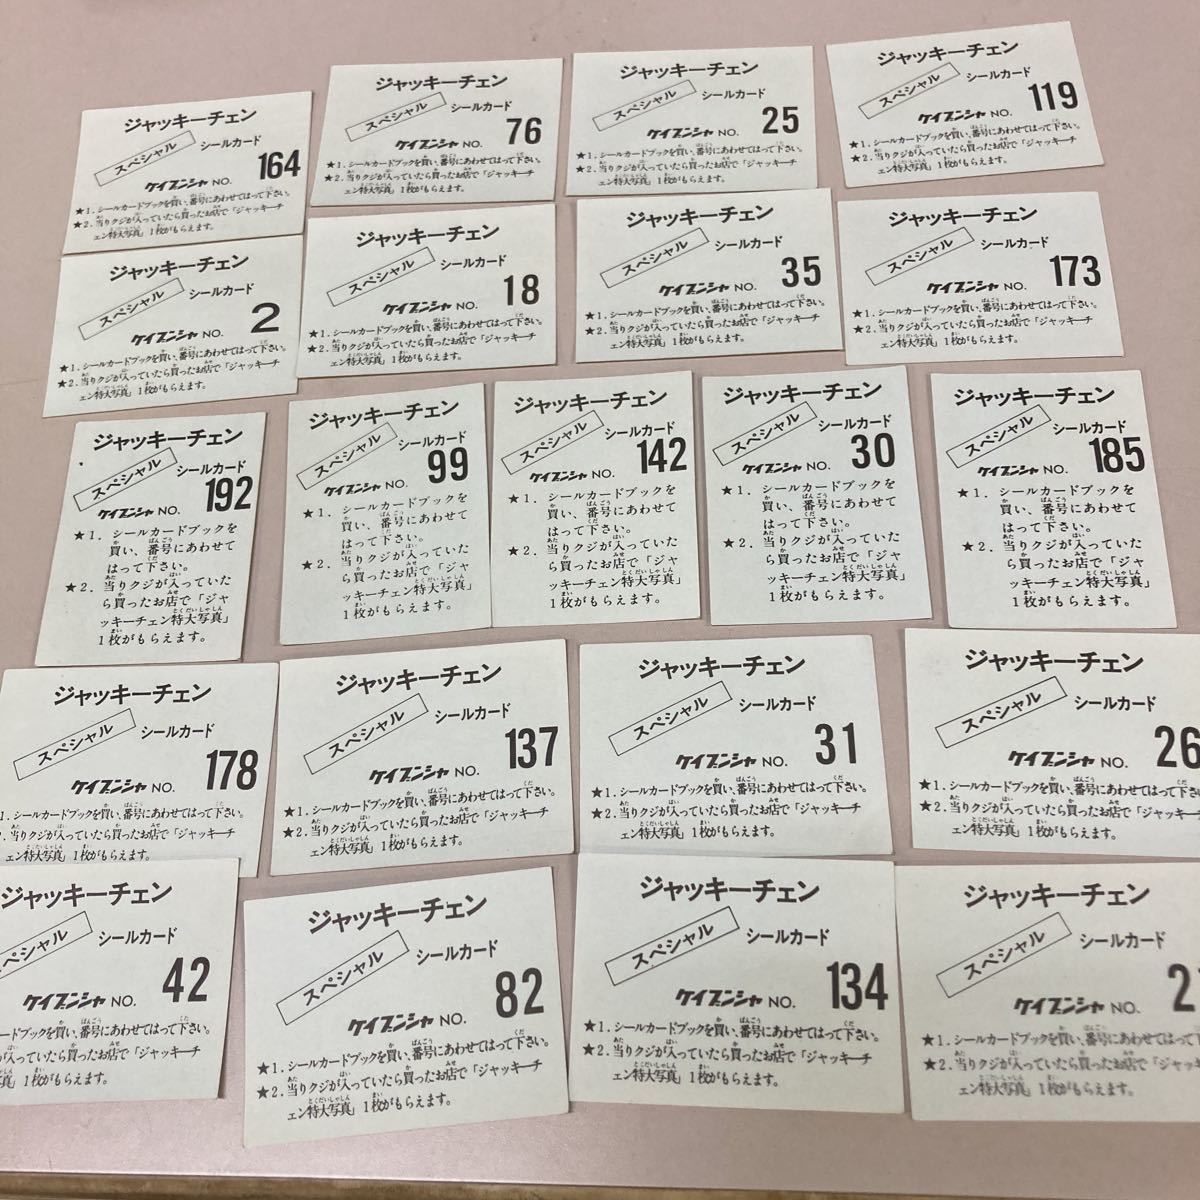 ジャッキーチェン
スペシャル シールカード
ケイブンシャ NO. 164
★1. シールカードブックを買い、番号にあわせてはって下さい。
★2. 当りクジが入っていたら買ったお店で「ジャッキーチ
ェン特大写真」1枚がもらえます。
ジャッキーチェン
スペシャル シールカード
ケイブンシャ NO. 76
★1. シールカードブックを買い、番号にあわせてはって下さい。
★2. 当りクジが入っていたら買ったお店で「ジャッキーチ
ェン特大写真」1枚がもらえます。
ジャッキーチェン
スペシャル シールカード
ケイブンシャ NO. 25
★1. シールカードブックを買い、番号にあわせてはって下さい。
★2. 当りクジが入っていたら買ったお店で「ジャッキーチ
ェン特大写真」1枚がもらえます。
ジャッキーチェン
スペシャル シールカード
ケイブンシャ NO. 119
★1. シールカードブックを買い、番号にあわせてはって下さい。
★2. 当りクジが入っていたら買ったお店で「ジャッキーチ
ェン特大写真」1枚がもらえます。
ジャッキーチェン
スペシャル シールカード
ケイブンシャ NO. 2
★1. シールカードブックを買い、番号にあわせてはって下さい。
★2. 当りクジが入っていたら買ったお店で「ジャッキーチ
ェン特大写真」1枚がもらえます。
ジャッキーチェン
スペシャル シールカード
ケイブンシャ NO. 18
★1. シールカードブックを買い、番号にあわせてはって下さい。
★2. 当りクジが入っていたら買ったお店で「ジャッキーチ
ェン特大写真」1枚がもらえます。
ジャッキーチェン
スペシャル シールカード
ケイブンシャ NO. 35
★1. シールカードブックを買い、番号にあわせてはって下さい。
★2. 当りクジが入っていたら買ったお店で「ジャッキーチ
ェン特大写真」1枚がもらえます。
ジャッキーチェン
スペシャル シールカード
ケイブンシャ NO. 173
★1. シールカードブックを買い、番号にあわせてはって下さい。
★2. 当りクジが入っていたら買ったお店で「ジャッキーチ
ェン特大写真」1枚がもらえます。
ジャッキーチェン
スペシャル シールカード
ケイブンシャ NO. 192
★1. シールカードブックを
買い、番号にあわせて
はって下さい。
★2. 当りクジが入っていた
ら買ったお店で「ジャ
ッキーチェン特大写真」
1枚がもらえます。
ジャッキーチェン
スペシャル シールカード
ケイブンシャ NO. 99
★1. シールカードブックを
買い、番号にあわせて
はって下さい。
★2. 当りクジが入っていた
ら買ったお店で「ジャ
ッキーチェン特大写真」
1枚がもらえます。
ジャッキーチェン
スペシャル シールカード
ケイブンシャ NO. 142
★1. シールカードブックを
買い、番号にあわせて
はって下さい。
★2. 当りクジが入っていた
ら買ったお店で「ジャ
ッキーチェン特大写真」
1枚がもらえます。
ジャッキーチェン
スペシャル シールカード
ケイブンシャ NO. 30
★1. シールカードブックを
買い、番号にあわせて
はって下さい。
★2. 当りクジが入っていた
ら買ったお店で「ジャ
ッキーチェン特大写真」
1枚がもらえます。
ジャッキーチェン
スペシャル シールカード
ケイブンシャ NO. 185
★1. シールカードブックを
買い、番号にあわせて
はって下さい。
★2. 当りクジが入っていた
ら買ったお店で「ジャ
ッキーチェン特大写真」
1枚がもらえます。
ジャッキーチェン
スペシャル シールカード
ケイブンシャ NO. 178
★1. シールカードブックを買い、番号にあわせてはって下さい。
2. 当りクジが入っていたら買ったお店で「ジャッキーチ
ェン特大写真」1枚がもらえます。
ジャッキーチェン
スペシャル シールカード
ケイブンシャ NO. 137
★1. シールカードブックを買い、番号にあわせてはって下さい。
★2. 当りクジが入っていたら買ったお店で「ジャッキーチ
ェン特大写真」1枚がもらえます。
ジャッキーチェン
スペシャル シールカード
ケイブンシャ NO. 31
★1. シールカードブックを買い、番号にあわせてはって下さい。
★2. 当りクジが入っていたら買ったお店で「ジャッキーチ
ェン特大写真」1枚がもらえます。
ジャッキーチェン
スペシャル シールカード
ケイブンシャ NO. 26
★1. シールカードブックを買い、番号にあわせてはって下さい。
★2. 当りクジが入っていたら買ったお店で「ジャッキーチ
ェン特大写真」1枚がもらえます。
ジャッキーチェン
スペシャル シールカード
ケイブンシャ NO. 42
カードブックを買い、番号にあわせてはって下さい。
が入っていたら買ったお店で「ジャッキーチ
写真」1枚がもらえます。
ジャッキーチェン
スペシャル シールカード
ケイブンシャ NO. 82
★1. シールカードブックを買い、番号にあわせてはって下さい。
★2. 当りクジが入っていたら買ったお店で「ジャッキーチ
ェン特大写真」1枚がもらえます。
ジャッキーチェン
スペシャル シールカード
ケイブンシャ NO. 134
★1. シールカードブックを買い、番号にあわせてはって下さい。
★2. 当りクジが入っていたら買ったお店で「ジャッキーチ
ェン特大写真」1枚がもらえます。
ジャッキーチェン
スペシャル シールカード
ケイブンシャ NO. 2
★1. シールカードブックを買い、番号にあわせてはって下さ
★2. 当りクジが入っていたら買ったお店で「ジャッキー
ェン特大写真」1枚がもらえます。